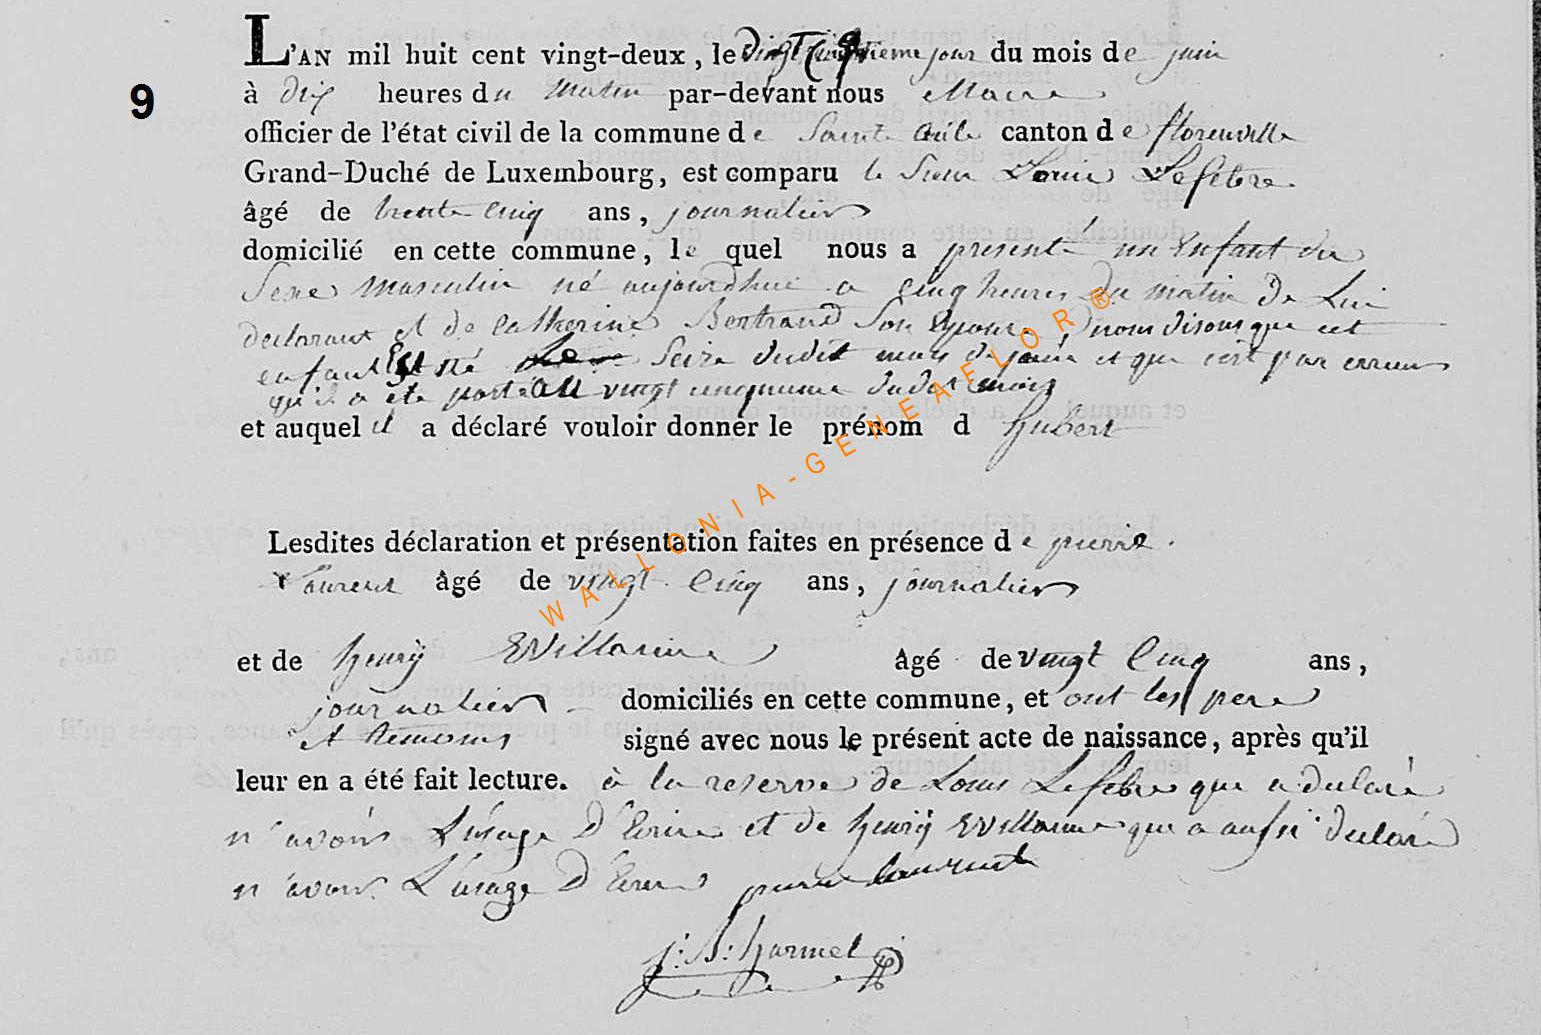 9
L'AN mil huit cent vingt-deux, le vingt cinquieme jour du mois de juin
à dix heures du matin par-devant nous Maire
officier de l'état civil de la commune de Sainte Cécile canton de florenville
Grand-Duché de Luxembourg, est comparu le Sieur Louis Lefebvre
âgé de trente cinq ans, journalier
domicilié en cette commune, lequel nous a presenté un Enfant du
Sexe masculin né aujourdhui a cinq heures du matin De Lui
declarant et de Catherine Bertrand Son Epouse, nous disons que cet
enfant Est né Seize dudit mois de juin et que c'est par erreur
qu'il a été porté au vingt cinquieme dudit mois
et auquel il a déclaré vouloir donner le prénom d Hubert
Lesdites déclaration et présentation faites en présence de pierre
Laurent âgé de vingt Cinq ans, journalier
et de henry Willaume âgé de vingt Cinq ans,
journalier domiciliés en cette commune, et ont les pere
et temoins signé avec nous le présent acte de naissance, après qu'il
leur en a été fait lecture. à la reserve de Louis Lefebvre que a declaré
n'avoir L'usage D'Ecrire et de henry Willaume que a aussi declaré
n'avoir L'usage D'Ecrire pierre laurent
J: B: Harmel
WALLONIA-GENEAFLOR®